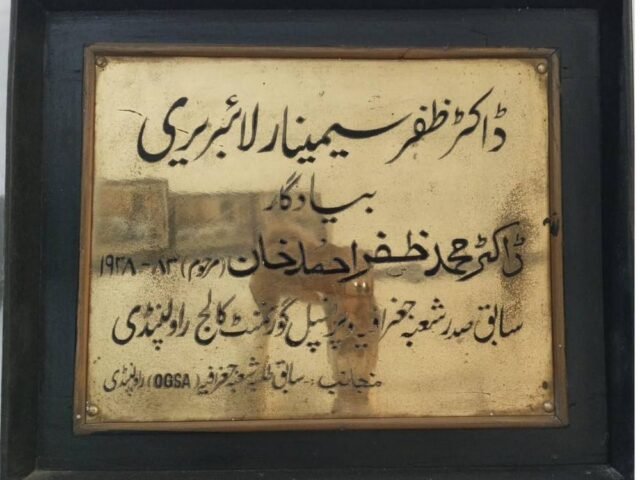 ڈاکٹر ظفر سیمینار لائبریری
بیادگار
ڈاکٹر محمد ظفر احمد خان (مرحوم) ۸۳-۱۹۲۸
سابق صدر شعبہ جغرافیہ و پرنسپل گورنمنٹ کالج راولپنڈی
منجانب :۔ سابق طلبہ شعبہ جغرافیہ (OGSA) راولپنڈی